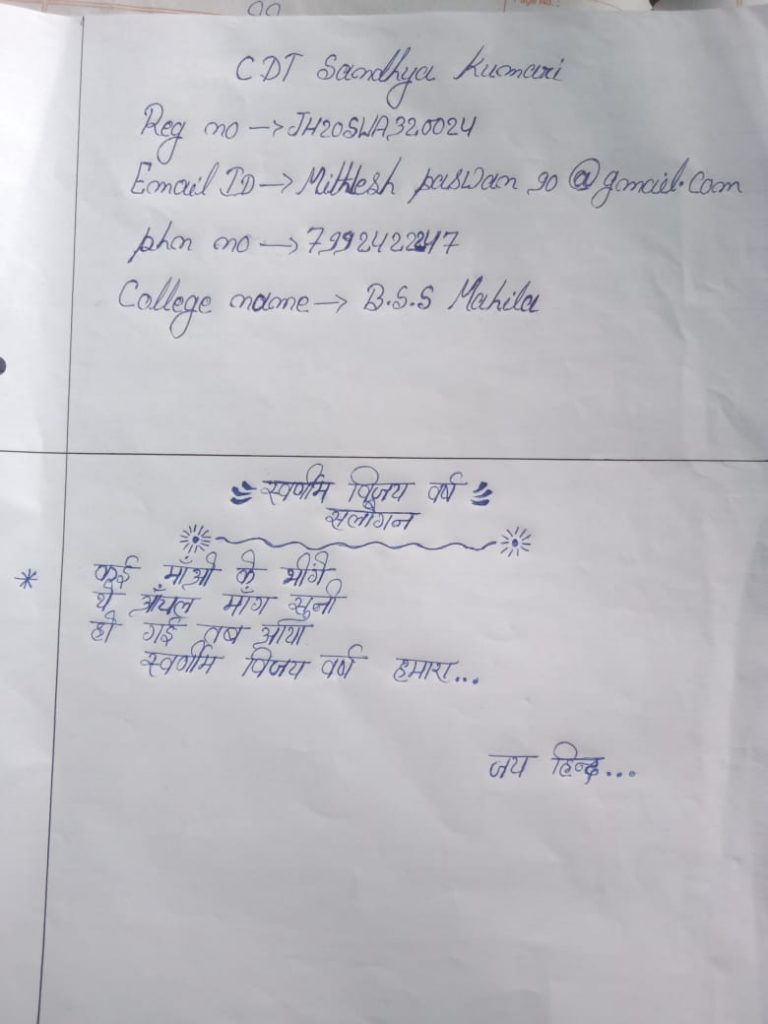 CDT Sandhya Kumari
Reg no → JH20SWA320024
Email ID → Mithlesh paswan 90 @gmail.com
phn no → 7992422247
College name → B.S.S Mahila
स्वर्णीम विजय वर्ष
सलोगन
* कई माँओ के भींगे
थे आँचल माँग सुनी
हो गई तब आया
स्वर्णीम विजय वर्ष हमारा...
जय हिन्द...